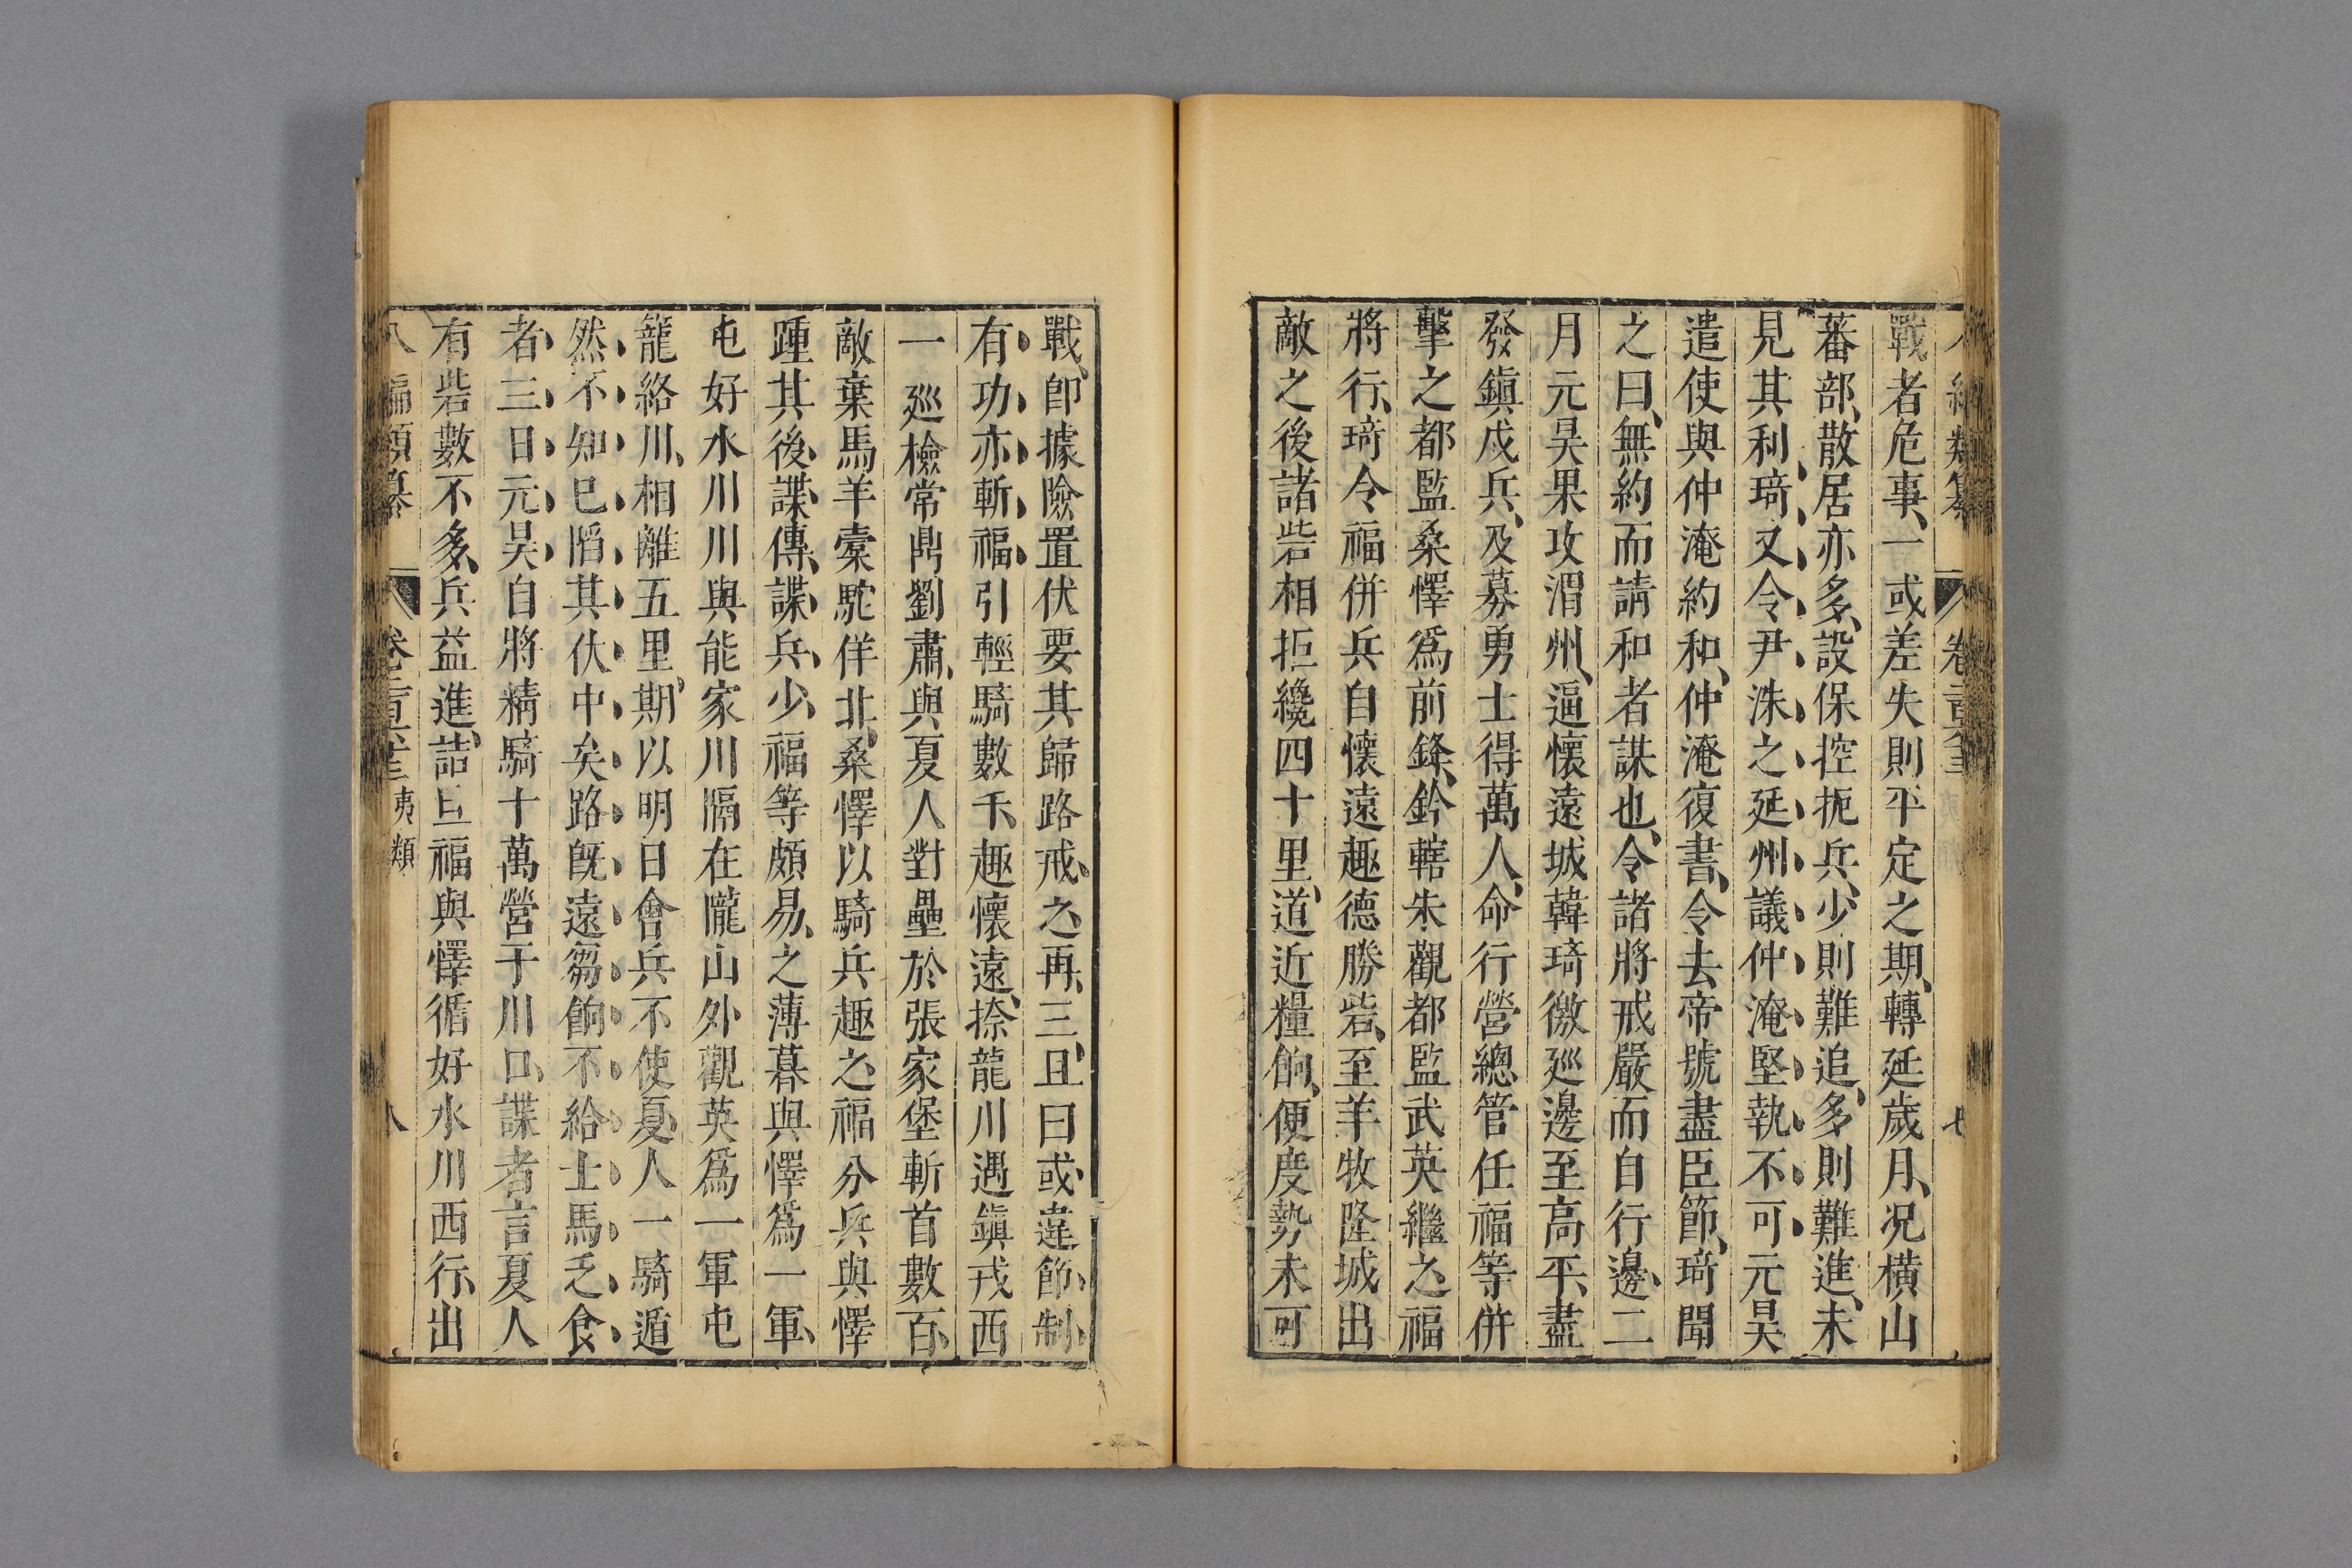 戰者危事、一或差失則平定之期、轉延歲月、况橫山
蕃部、散居亦多、設保控扼兵少、則難追、多則難進、未
見其利、琦又令尹洙之延州議、仲淹堅執不可、元昊
遣使與仲淹約和、仲淹復書、令去帝號盡臣節、琦聞
之曰、無約而請和者謀也、令諸將戒嚴而自行邊、二
月元昊果攻渭州、逼懷遠城韓琦徼廵邊至高平、盡
發鎮戍兵、及募勇士得萬人、命行營總管任福等併
擊之都監桑懌爲前鋒、鈐轄朱觀都監武英繼之福
將行、琦令福併兵自懷遠趣德勝砦、至羊牧隆城出
敵之後諸砦相拒纔四十里、道近糧餉、便度勢未可
戰、卽據險置伏要其歸路、戒之再三、且曰或違節制
有功亦斬、福引輕騎數千、趣懷遠、捺龍川遇鎮戎西
一廵檢常鼎劉肅、與夏人對壘於張家堡斬首數百、
敵棄馬羊槖駝佯北、桑懌以騎兵趣之福分兵與懌
踵其後、諜傳、諜兵少、福等頗易之薄暮與懌爲一軍、
屯好水川川與能家川隔在隴山外觀英爲一軍屯
籠絡川、相離五里、期以明日會兵不使夏人一騎遁
然不知已陷其伏中矣路旣遠芻餉不給士馬乏食
者三日元昊自將精騎十萬營于川口、諜者言夏人
有砦數不多、兵益進、詰旦福與懌循好水川西行、出
八編類纂 卷二百六十三 夷類 八